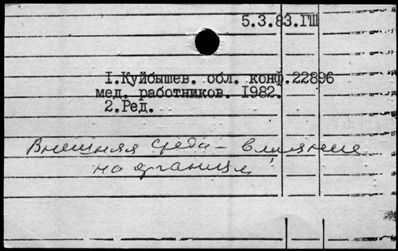 5.3.83.ГШ
1.Куйбышев. обл. конф.22896
мед. работников. 1982.
2.Ред.
Внешняя среда - влияние
на организм